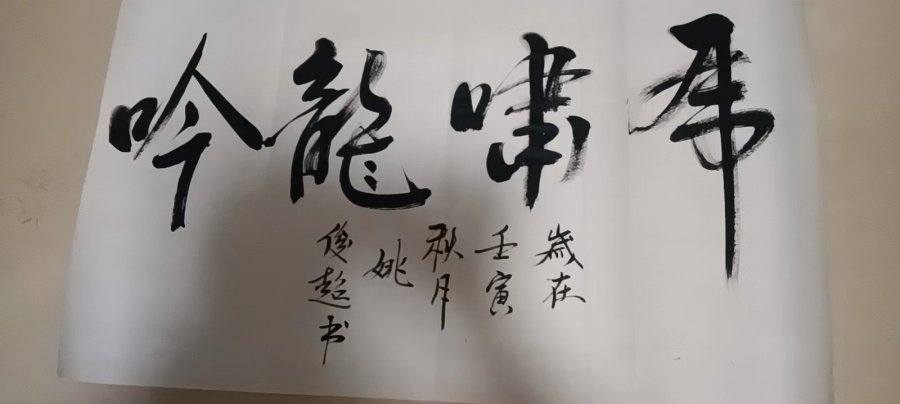 虎嘯龍吟
歲在
壬寅
秋月
姚
俊超书